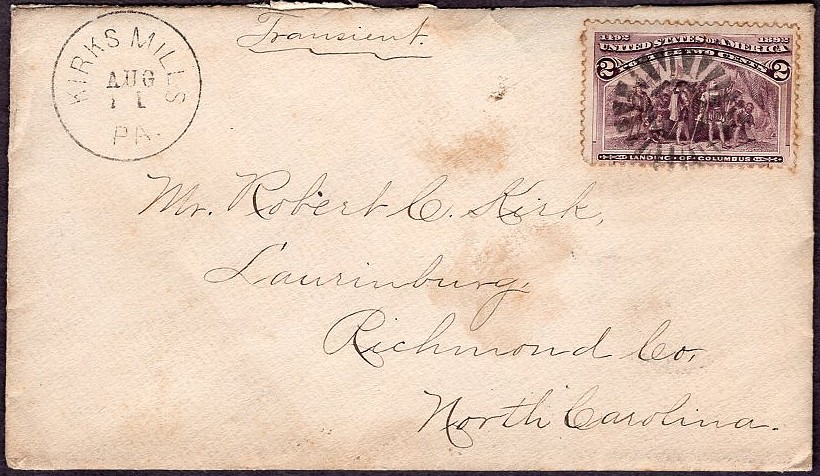 Transient.
KIRKS MILLS
AUG
11
PA.
1492 1892
UNITED STATES OF AMERICA
POSTAGE TWO CENTS
2 2
LANDING OF COLUMBUS
Mr. Robert C. Kirk,
Laurinburg,
Richmond Co,
North Carolina.